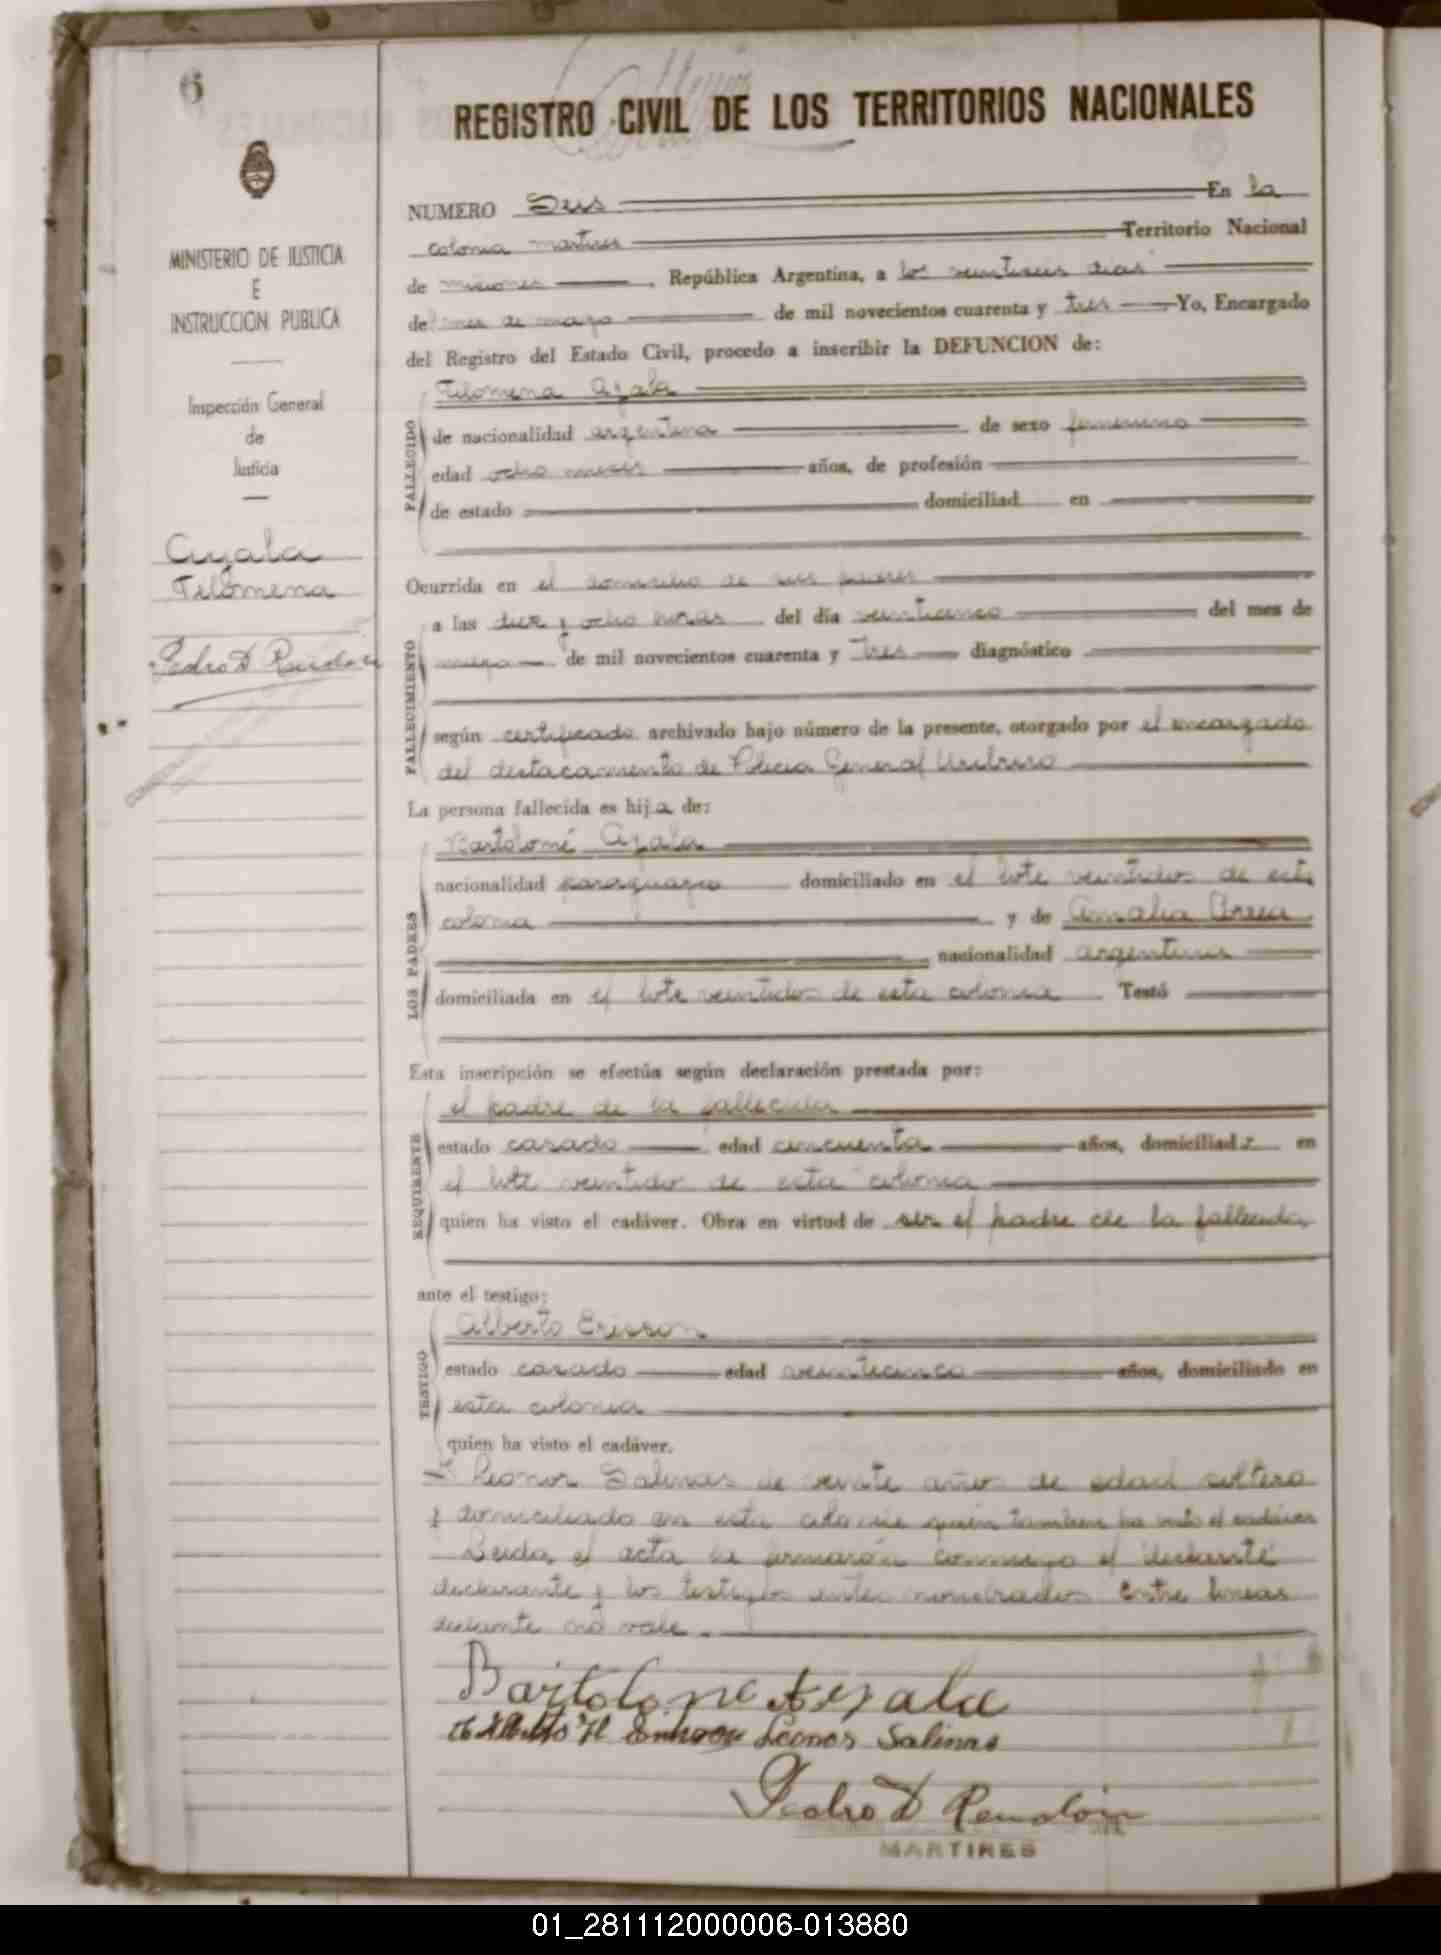 6
REGISTRO CIVIL DE LOS TERRITORIOS NACIONALES
MINISTERIO DE JUSTICIA
E
INSTRUCCION PUBLICA
Inspección General
de
Justicia
Ayala
Filomena
Pedro D Rendon
NUMERO Seis En la
colonia martires Territorio Nacional
de misiones, República Argentina, a los veintiseis dias
del mes de mayo de mil novecientos cuarenta y tres Yo, Encargado
del Registro del Estado Civil, procedo a inscribir la DEFUNCION de:
FALLECIDO
Filomena Ayala
de nacionalidad argentina de sexo femenino
edad ocho meses años, de profesión
de estado domiciliad en
Ocurrida en el domicilio de sus padres
FALLECIMIENTO
a las diez y ocho horas del día veinticinco del mes de
mayo de mil novecientos cuarenta y Tres diagnóstico
según certificado archivado bajo número de la presente, otorgado por el encargado
del destacamento de Policia General Uriburu
La persona fallecida es hija de:
LOS PADRES
Bartolomé Ayala
nacionalidad paraguayo domiciliado en el lote veintidos de esta
colonia y de Amalia
nacionalidad argentina
domiciliada en el lote veintidos de esta colonia Testó
Esta inscripción se efectúa según declaración prestada por:
REQUIRENTE
el padre de la fallecida
estado casado edad cincuenta años, domiciliado en
el lote veintidos de esta colonia
quien ha visto el cadáver. Obra en virtud de ser el padre de la fallecida
ante el testigo:
TESTIGO
Alberto
estado casado edad veinticinco años, domiciliado en
esta colonia
quien ha visto el cadáver.
Leonor Salinas de veinte años de edad soltero
y domiciliado en esta colonia quien tambien ha visto el cadáver
Leida el acta la firmarón conmigo el
declarante y los testigos antes nombrados Entre lineas
no vale.
Bartolome Ayala
Alberto H Leonor Salinas
Pedro D Rendon
MARTIRES
01_281112000006-013880